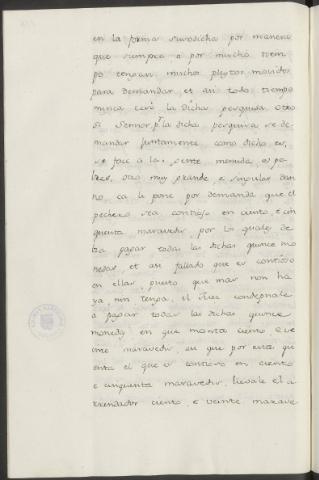 en la forma susodicha por manera
que siempre o por mucho tiem
po tengan muchos pleytos movidos
para demandar, et asi todo tiempo
nunca cese la dicha pesquisa. otro
si Sennor pr la dicha pesquisa se de
mandar juntamente como dicho es,
se face a la gente menuda, es po
bres, otro muy grande e singular dan
no, ca le pone por demanda que el
pechero sea contioso en ciento, e cin
quenta maravedis por lo quales de
bia pagar todas las dichas quince mo
nedas, et asi fallado que es contioso
en ellas, puesto que mas non ha
ya nin tenga, el Juez condepnale
a pagar todas las dichas quince
monedas en que monta ciento, e ve
inte maravedis, asi que por esta qu
enta el que es contioso en ciento
e cinquenta maravedis, lievale el a
rrendador ciento, e veinte marave